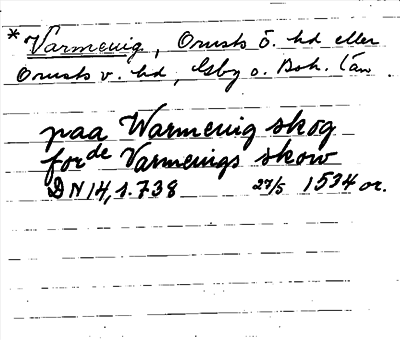 * Varmenig, Orusts ö. hd eller
Orusts v. hd, Gbg o. Boh. län
paa Warmenig skog
forde Varmenigs skow
DN 14, s. 738 27/5 1534 or.